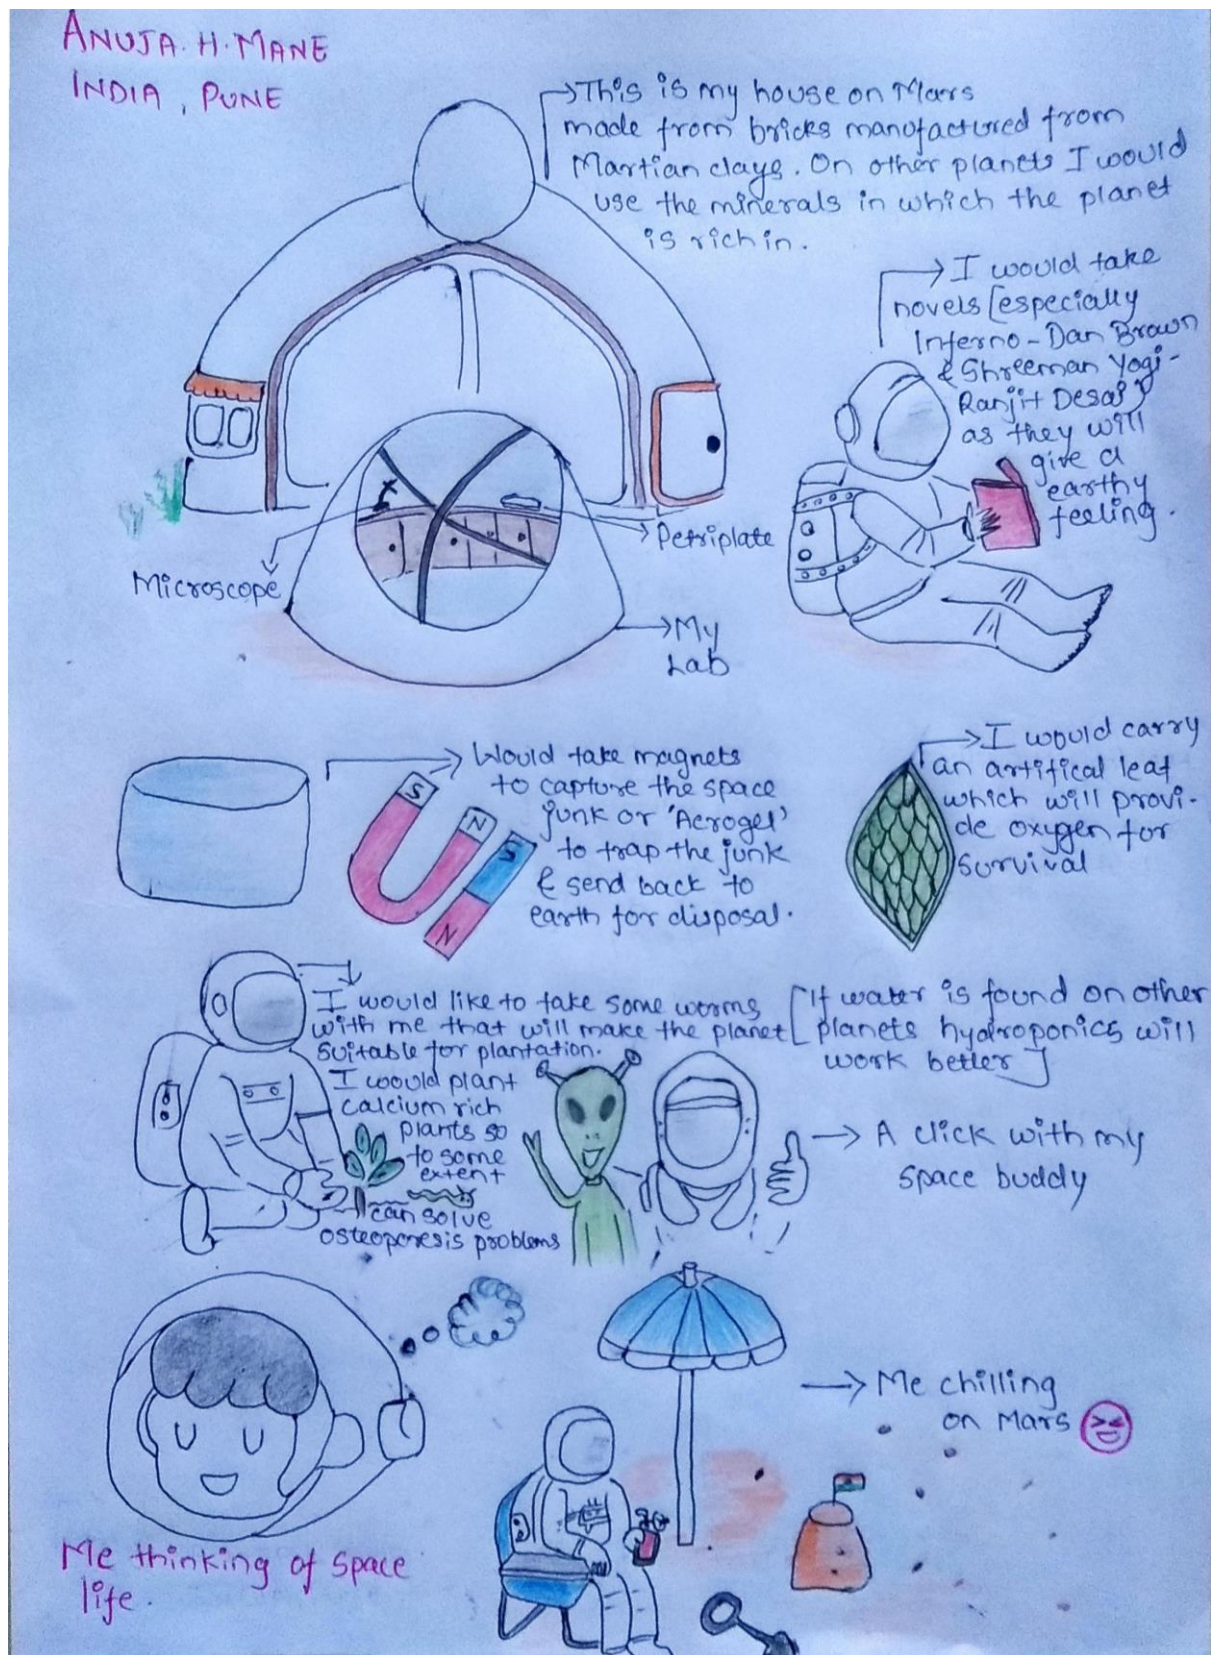 ANUJA. H. MANE
INDIA, PUNE
This is my house on Mars
made from bricks manufactured from
Martian clays. On other planets I would
use the minerals in which the planet
is rich in.
I would take
novels [especially
Inferno - Dan Brown
& Shreeman Yogi -
Ranjit Desai]
as they will
give a
earthy
feeling.
Petriplate
Microscope
My
Lab
Would take magnets
to capture the space
junk or 'Aerogel'
to trap the junk
& send back to
earth for disposal.
S
N
S
N
I would carry
an artifical leaf
which will provi-
de oxygen for
survival
I would like to take some worms
with me that will make the planet
suitable for plantation.
I would plant
calcium rich
plants so
to some
extent
can solve
osteoporesis problems
[If water is found on other
planets hydroponics will
work better]
A click with my
space buddy
Me chilling
on Mars
Me thinking of space
life.